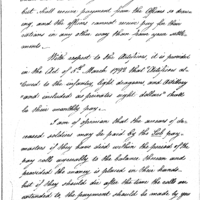 but shall receive payment from the Officers so draw-
ing, and the officers cannot receive pay for them-
selves in any other way than from your settle-
ment.
With respect to the Artificers, it is provided
in the Act of 3d. March 1795 that "Artificers al-
lowed to the infantry, light dragoons, and Artillery
"and included as privates eight dollars" shall be
their monthly pay.
I am of opinion that the arrears of de-
ceased soldiers may be paid by the pay-
masters if they have died within the periods of the
pay rolls
provided the money is placed in their hands.
but if they should die after the time the rolls are
extended to the payment should be made by you